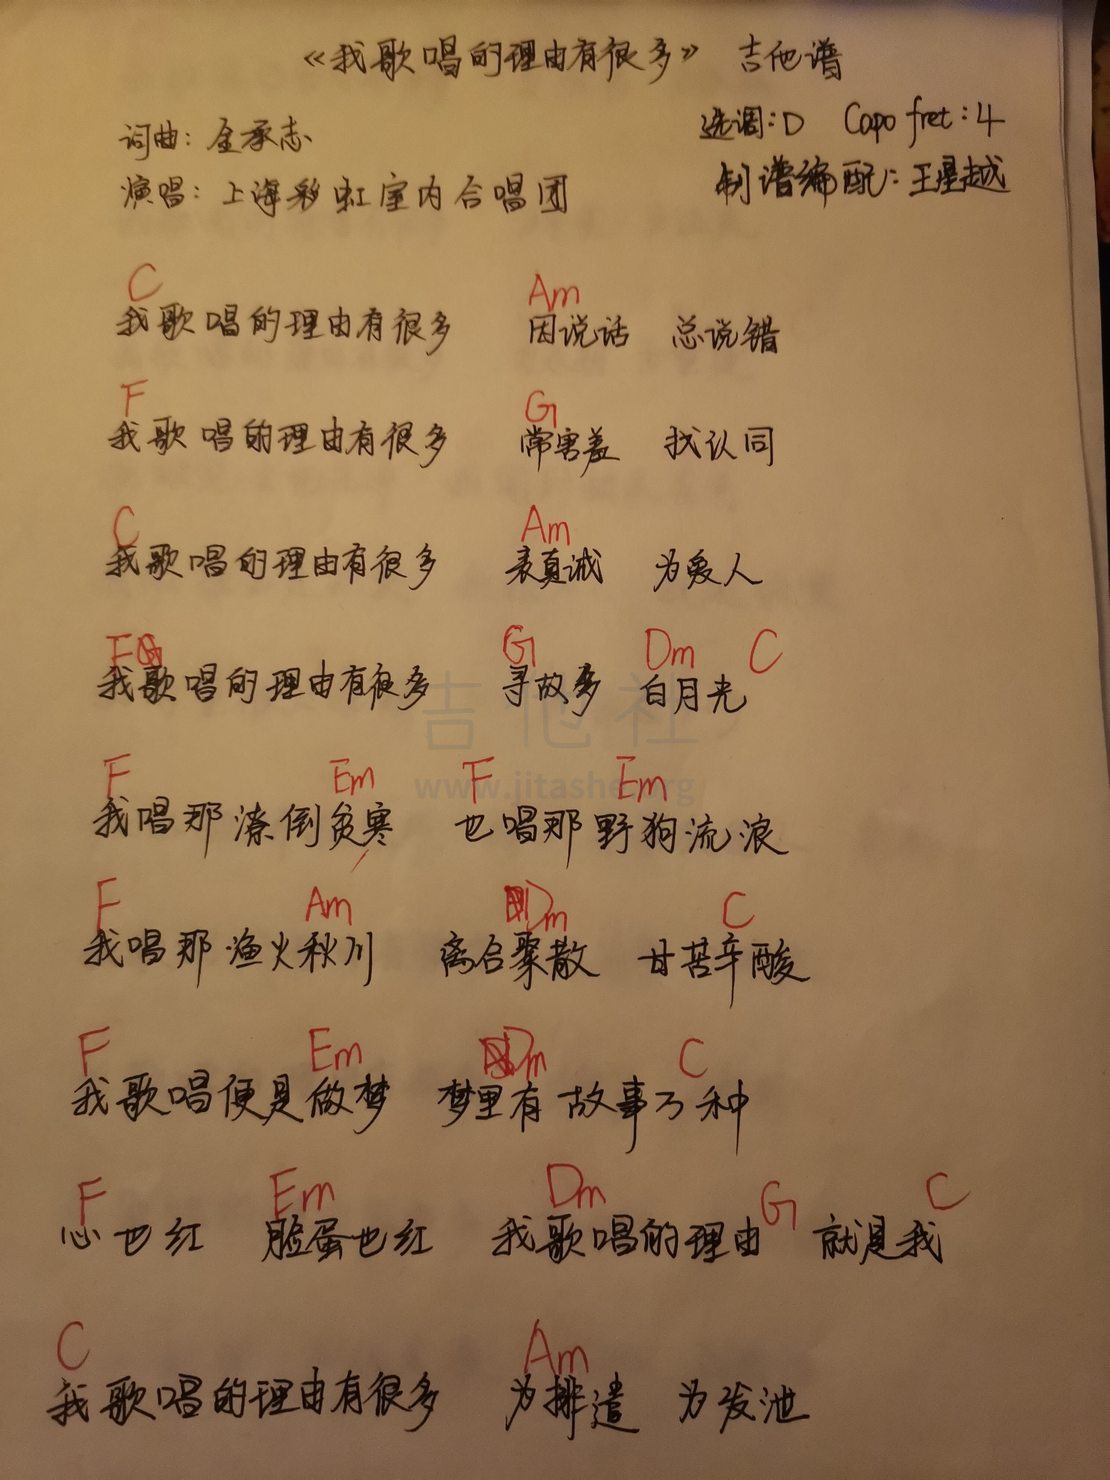 《我歌唱的理由有很多》 吉他谱
词曲：金承志
选调：D Capo fret：4
演唱：上海彩虹室内合唱团
制谱编配：王星越
C Am
我歌唱的理由有很多 因说话 总说错
F G
我歌唱的理由有很多 常害羞 找认同
C Am
我歌唱的理由有很多 表真诚 为爱人
F G Dm C
我歌唱的理由有很多 寻故乡 白月光
吉他社
www.jitashe.org
F Em F Em
我唱那潦倒贫寒 也唱那野狗流浪
F Am Dm C
我唱那渔火秋川 离合聚散 甘苦辛酸
F Em Dm C
我歌唱便是做梦 梦里有故事万种
F Em Dm G C
心也红 脸蛋也红 我歌唱的理由 就是我
C Am
我歌唱的理由有很多 为排遣 为发泄